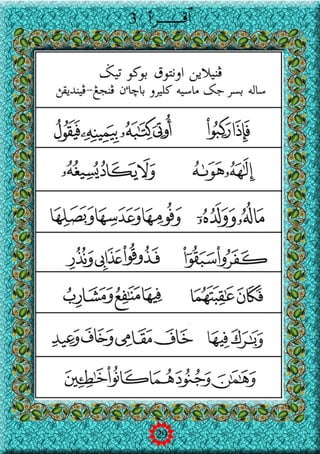 اَقــرأ 3
ڤنيلاين اونتوق بوکو تيݢ
ساله بسر جک ماسيه کليرو باچاءن ڤنجڠ-ڤينديقڽ
فَإِذَا رَكِبُوا۟ أُوتِىَ كِتَـٰبَهُۥ بِيَمِينِهِۦ فَيَقُولُ
إِلَـٰهَهُۥ هَوَىٰهُ وَلَا يَكَادُ يُسِيغُهُۥ
مَالُهُۥ وَوَلَدُهُۥٓ وَفُومِهَا وَعَدَسِهَا وَبَصَلِهَا
كَفَرُوا۟ سَبَقُوٓا۟ فَذُوقُوا۟ عَذَابِى وَنُذُرِ
فَكَانَ عَـٰقِبَتَهُمَا فِيهَا مَنَـٰفِعُ وَمَشَارِبُ
وَبَـٰرَكَ فِيهَا خَافَ مَقَامِى وَخَافَ وَعِيدِ
وَهَـٰمَـٰنَ وَجُنُودَهُمَا كَانُوا۟ خَـٰطِـِٔينَ
29